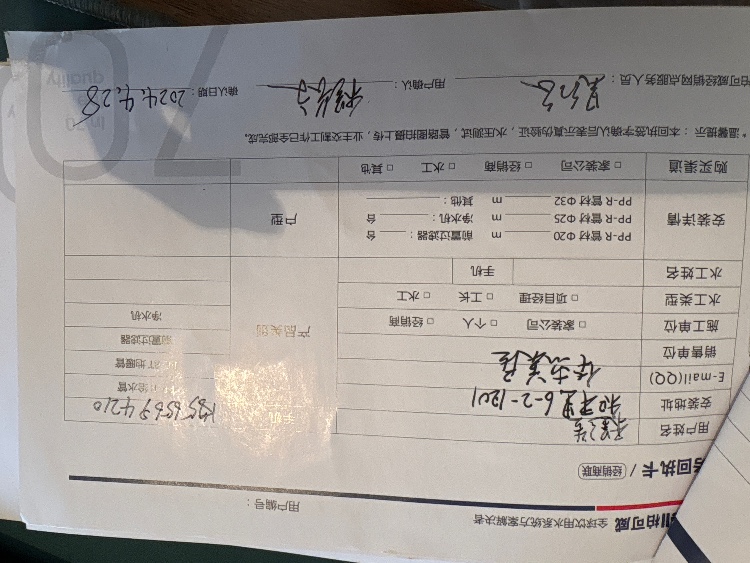 柏可威 全球饮用水系统方案解决者
用户编号：
回执卡 / 经销商联
用户姓名
手机
安装地址 和平里6-2-1201
E-mail(QQ)
销售单位
产品类别
给水管
地暖管
前置过滤器
净水机
施工单位 □ 家装公司 □ 个人 □ 经销商
水工类型 □ 项目经理 □ 工长 □ 水工
水工姓名 手机
安装详情
PP-R 管材 Φ20 m 前置过滤器： 台
PP-R 管材 Φ25 m 净水机： 台
PP-R 管材 Φ32 m 其他：
户型
购买渠道 □ 家装公司 □ 经销商 □ 水工 □ 其他
*温馨提示：本回执签字确认后表示真伪验证，水压测试，管路图拍摄上传，业主交割工作已全部完成。
柏可威经销网点服务人员： 用户确认： 确认日期：2024.4.28
quality